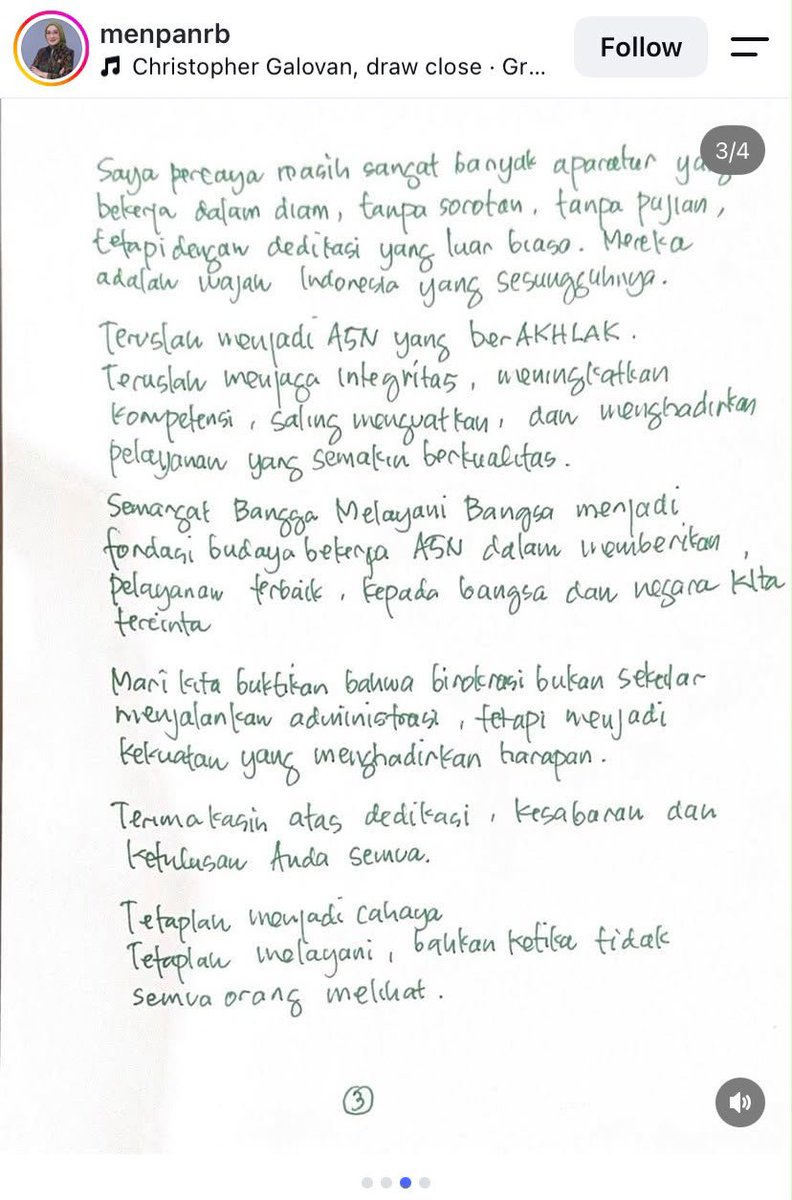 menpanrb
Follow
Christopher Galovan, draw close · Gr...
3/4
Saya percaya masih sangat banyak aparatur yang
bekerja dalam diam, tanpa sorotan, tanpa pujian,
tetapi dengan dedikasi yang luar biasa. Mereka
adalah wajah Indonesia yang sesungguhnya.
Teruslah menjadi ASN yang berAKHLAK.
Teruslah menjaga integritas, meningkatkan
kompetensi, saling menguatkan, dan menghadirkan
pelayanan yang semakin berkualitas.
Semangat Bangga Melayani Bangsa menjadi
fondasi budaya bekerja ASN dalam memberikan,
pelayanan terbaik, kepada bangsa dan negara kita
tercinta
Mari kita buktikan bahwa birokrasi bukan sekedar
menjalankan administrasi, tetapi menjadi
kekuatan yang menghadirkan harapan.
Terima kasih atas dedikasi, kesabaran dan
ketulusan Anda semua.
Tetaplah menjadi cahaya
Tetaplah melayani, bahkan ketika tidak
semua orang melihat.
3